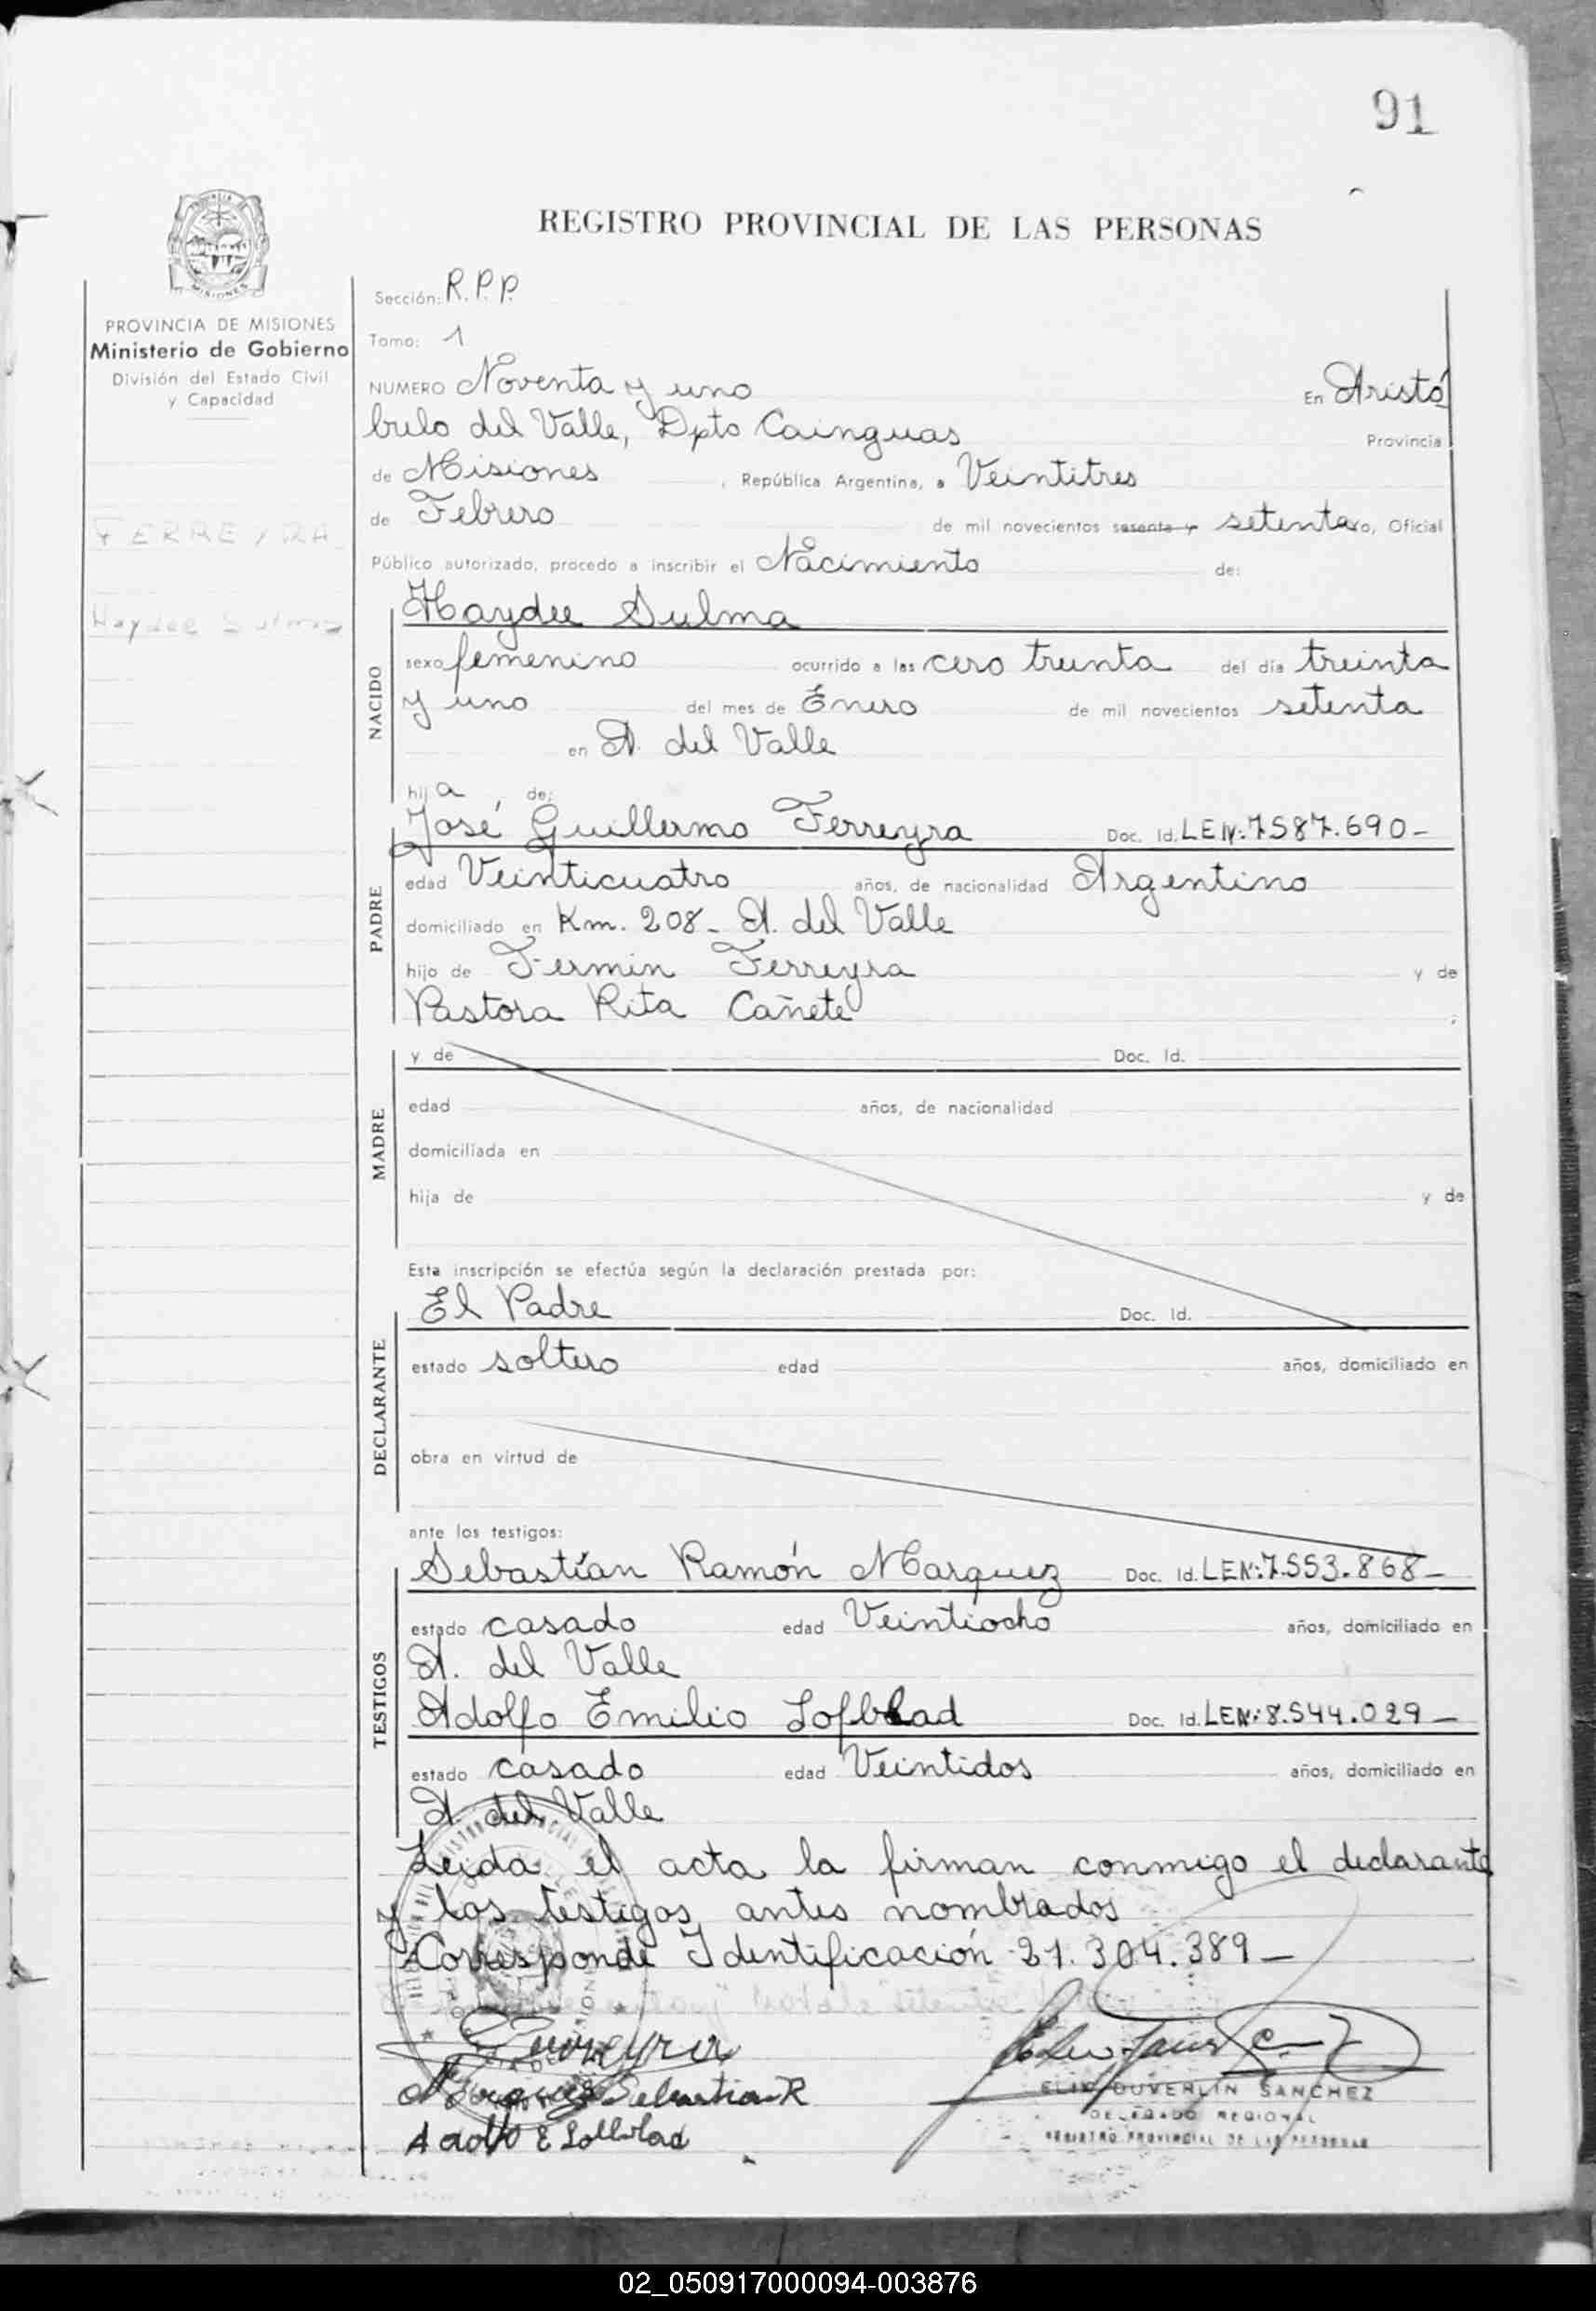 91
REGISTRO PROVINCIAL DE LAS PERSONAS
MISIONES
PROVINCIA DE MISIONES
Ministerio de Gobierno
División del Estado Civil
y Capacidad
FERREYRA
Haydee Sulma
Sección: R.P.P.
Tomo: 1
NUMERO Noventa y uno En Aristó
bulo del Valle, Dpto Cainguas Provincia
de Misiones, República Argentina, a Veintitres
de Febrero de mil novecientos sesenta y setenta yo, Oficial
Público autorizado, procedo a inscribir el Nacimiento de:
NACIDO
Haydee Sulma
sexo femenino ocurrido a las cero treinta del día treinta
y uno del mes de Enero de mil novecientos setenta
en A. del Valle
hija de:
PADRE
José Guillermo Ferreyra Doc. Id. LEN: 7587.690-
edad Veinticuatro años, de nacionalidad Argentino
domiciliado en Km. 208- A. del Valle
hijo de Fermin Ferreyra y de
Pastora Rita Cañete ;
MADRE
y de Doc. Id.
edad años, de nacionalidad
domiciliada en
hija de y de
Esta inscripción se efectúa según la declaración prestada por:
DECLARANTE
El Padre Doc. Id.
estado soltero edad años, domiciliado en
obra en virtud de
ante los testigos:
TESTIGOS
Sebastían Ramón Marquez Doc. Id. LEN: 7.553.868-
estado casado edad Veintiocho años, domiciliado en
A. del Valle
Adolfo Emilio Lofblad Doc. Id. LEN: 8.544.029-
estado casado edad Veintidos años, domiciliado en
A. del Valle
Leida el acta la firman conmigo el declarante
y los testigos antes nombrados
Corresponde Identificación 21.304.389-
Ferreyra
Marquez Sebastian R
Adolfo E Lofblad
ELIX DUVERLIN SANCHEZ
DELEGADO REGIONAL
REGISTRO PROVINCIAL DE LAS PERSONAS
02_050917000094-003876